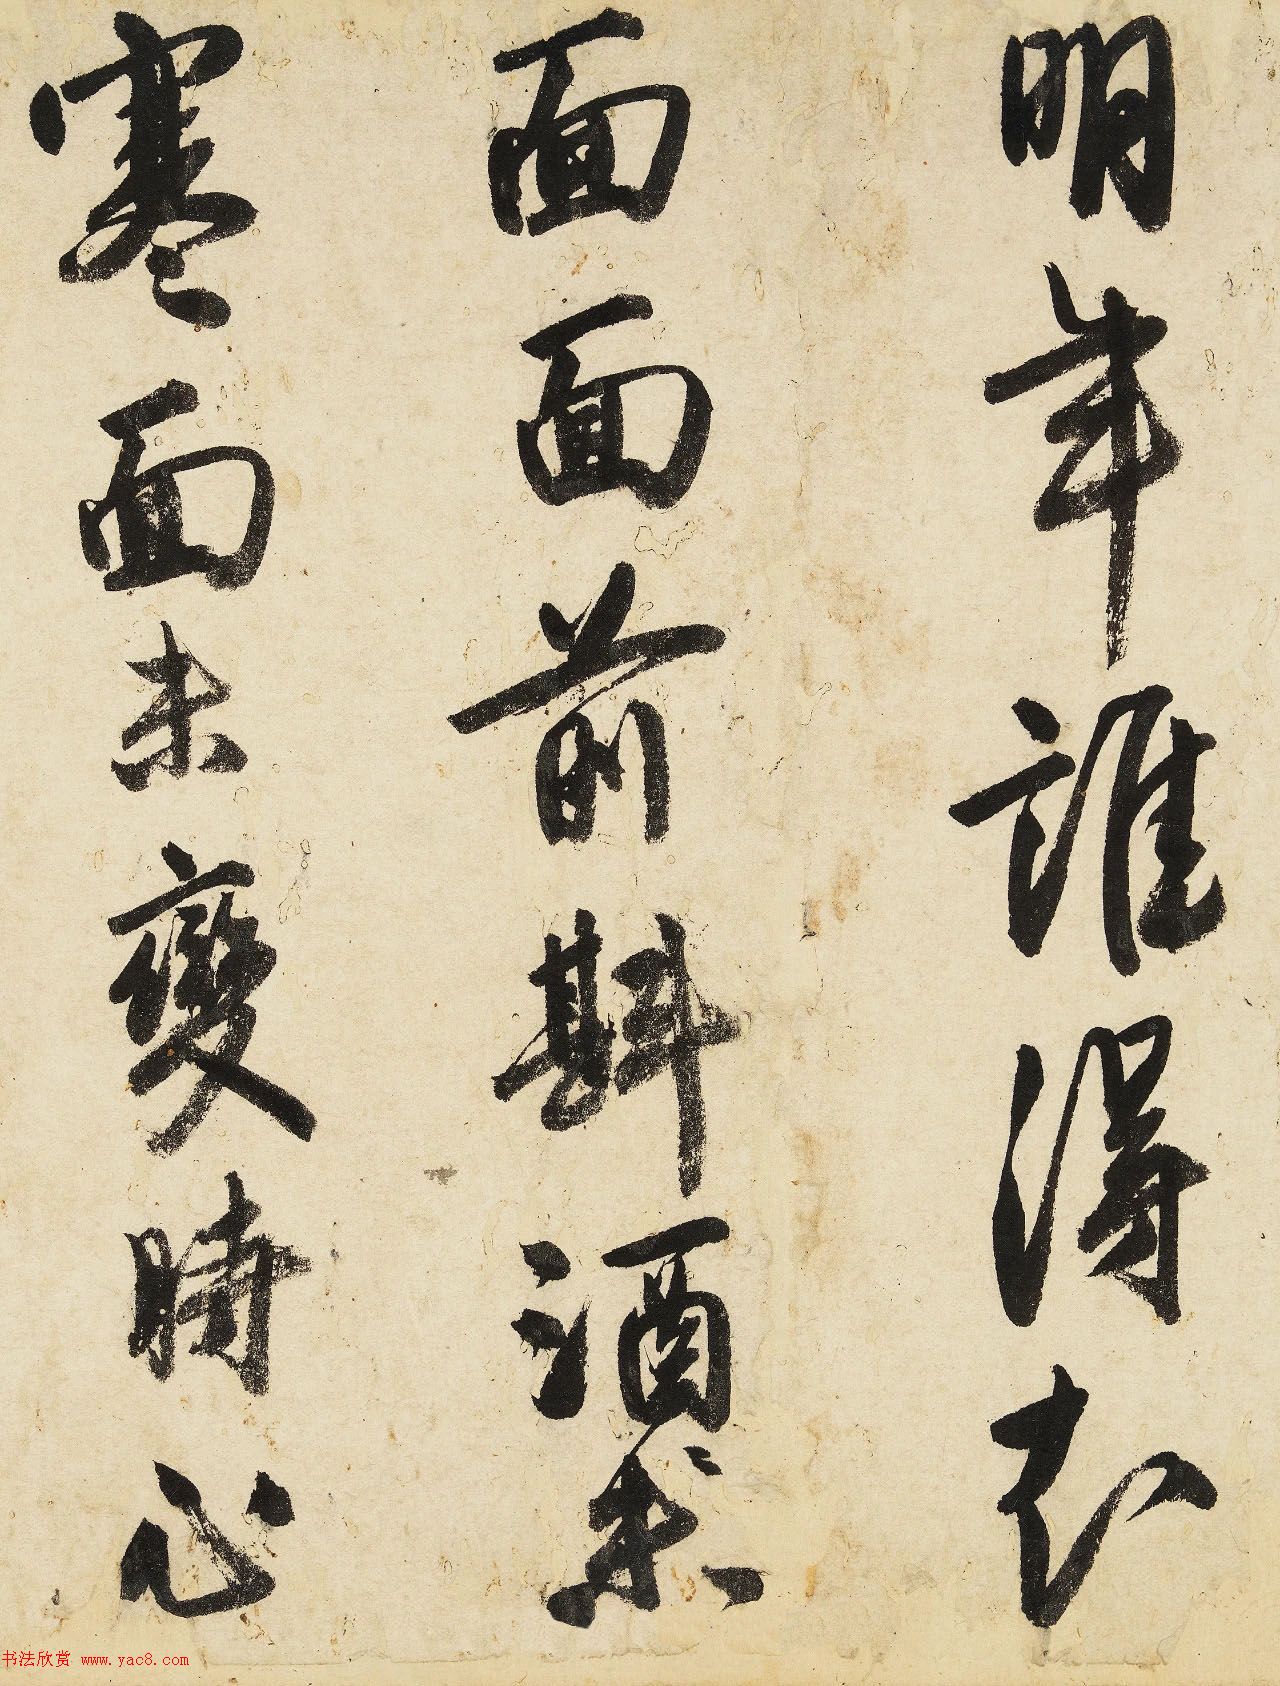 明年誰得知
面面前斟酒未
寒面未變時心
书法欣赏 www.yac8.com